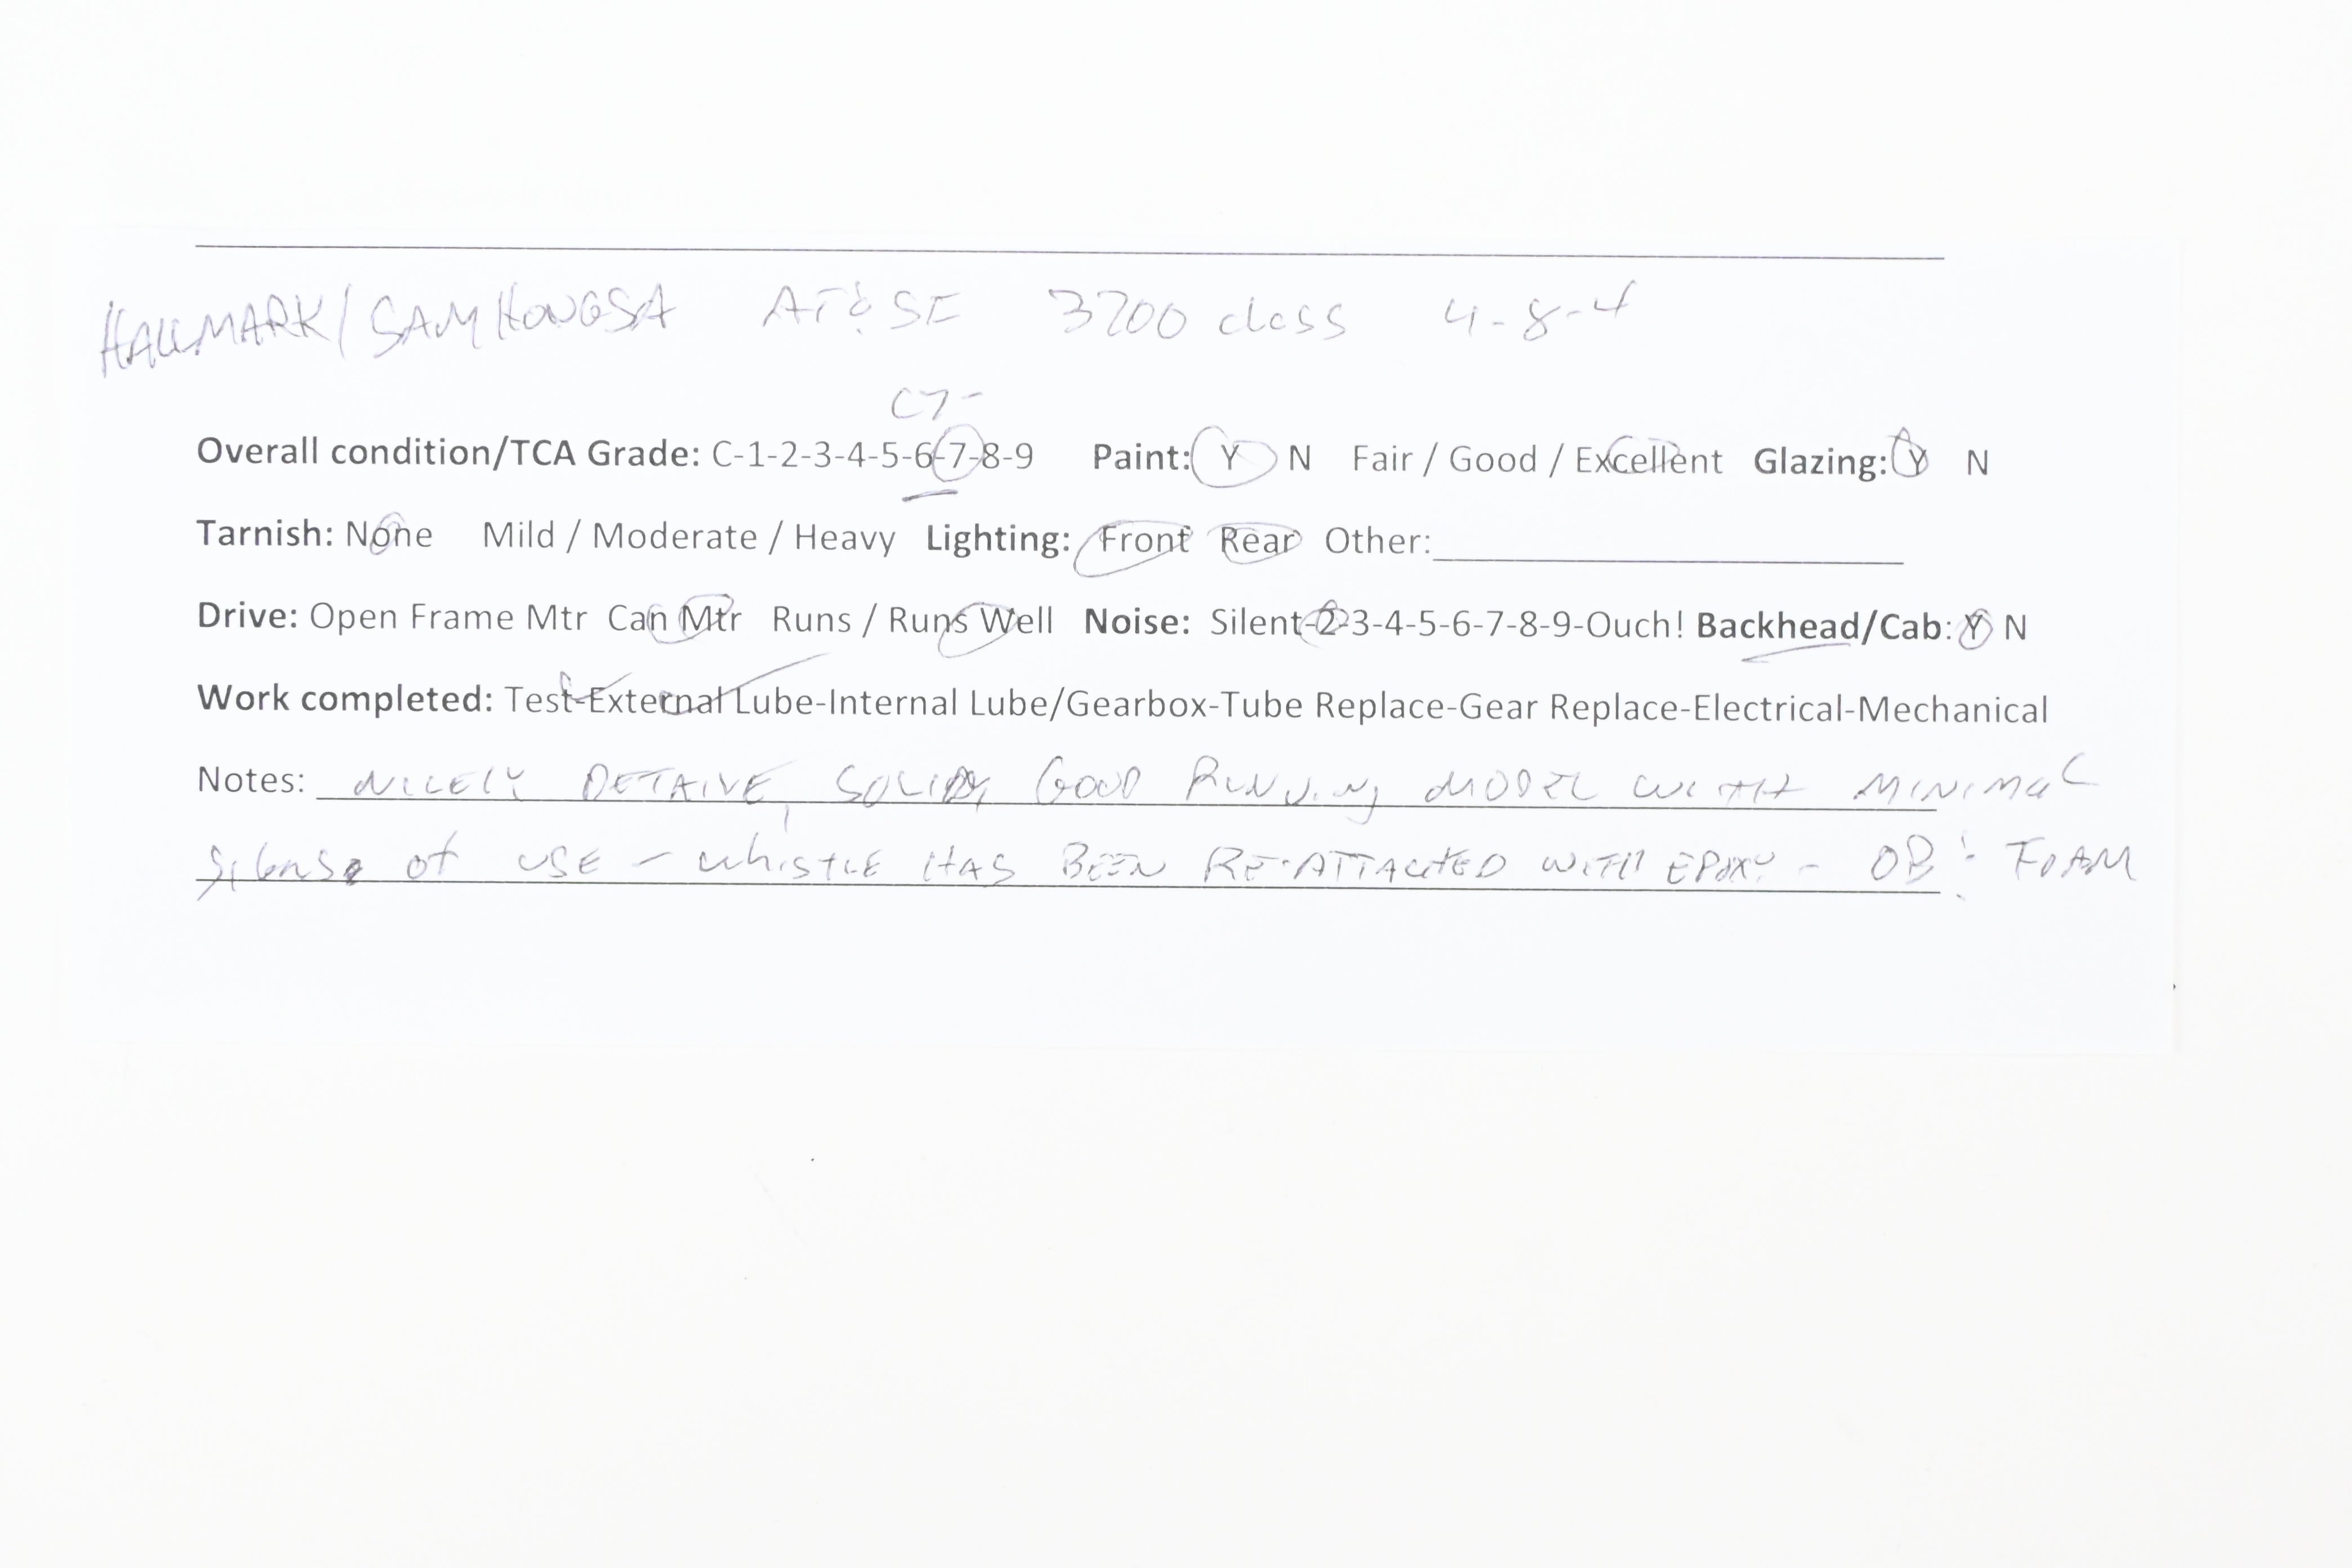 HALLMARK/SAMHONGSA AT&SF 3700 class 4-8-4
C7-
Overall condition/TCA Grade: C-1-2-3-4-5-6-7-8-9 Paint: Y N Fair / Good / Excellent Glazing: Y N
Tarnish: None Mild / Moderate / Heavy Lighting: Front Rear Other:
Drive: Open Frame Mtr Can Mtr Runs / Runs Well Noise: Silent-2-3-4-5-6-7-8-9-Ouch! Backhead/Cab: Y N
Work completed: Test-External Lube-Internal Lube/Gearbox-Tube Replace-Gear Replace-Electrical-Mechanical
Notes: NICELY SOLID, GOOD RUNNING MODEL WITH MINIMAL
SIGNS OF USE - WHISTLE HAS BEEN RE-ATTACHED WITH EPOXY - OB: FOAM